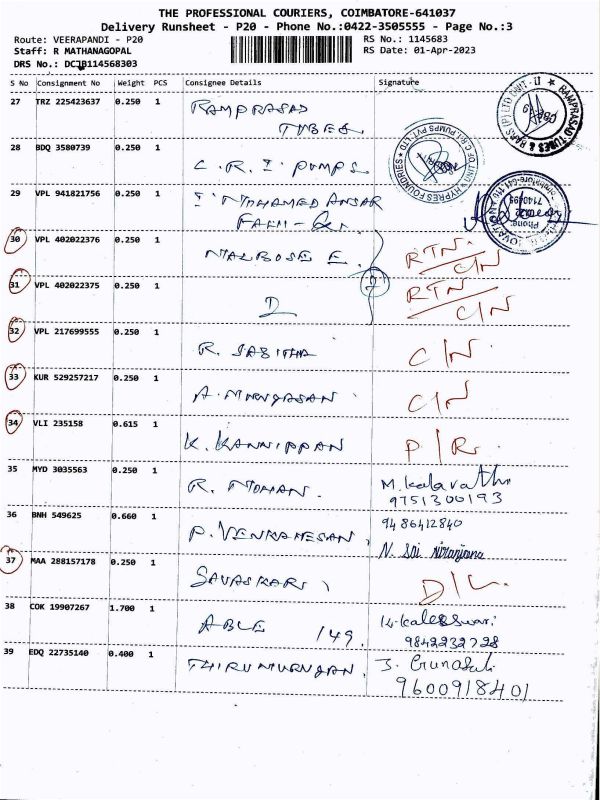 THE PROFESSIONAL COURIERS, COIMBATORE-641037
Delivery Runsheet - P20 - Phone No.:0422-3505555 - Page No.:3
Route: VEERAPANDI - P20
RS No.: 1145683
Staff: R MATHANAGOPAL
RS Date: 01-Apr-2023
DRS No.: DCJB114568303
S No Consignment No Weight PCS Consignee Details Signature
27 TRZ 225423637 0.250 1 RAMPRASAD
TUBES
RAMPRASAD TUBES & BARS (P) LTD UNIT - II
28 BDQ 3580739 0.250 1 C. R. I. PUMPS
29 VPL 941821756 0.250 1 I MOHAMED ANSAR
30 VPL 402022376 0.250 1 MALBOSE E. RTN. C/N
31 VPL 402022375 0.250 1 2 RTN C/N
32 VPL 217699555 0.250 1 R. SABITHA C/N
33 KUR 529257217 0.250 1 A. MURUGASAN C/N
34 VLI 235158 0.615 1 K. KANNIPPAN P/R.
35 MYD 3035563 0.250 1 R. MOHAN. M. Kalavathi
9751300193
36 BNH 549625 0.660 1 P. VENKATESAN, 9486412840
N. Sai Niranjana
37 MAA 288157178 0.250 1 SAVASKARI, D/L.
38 COK 19907267 1.700 1 ABLE 149. K. Kaleeswari
9842232728
39 EDQ 22735140 0.400 1 THIRUMURUGAN. J. Gunaseli
9600918401